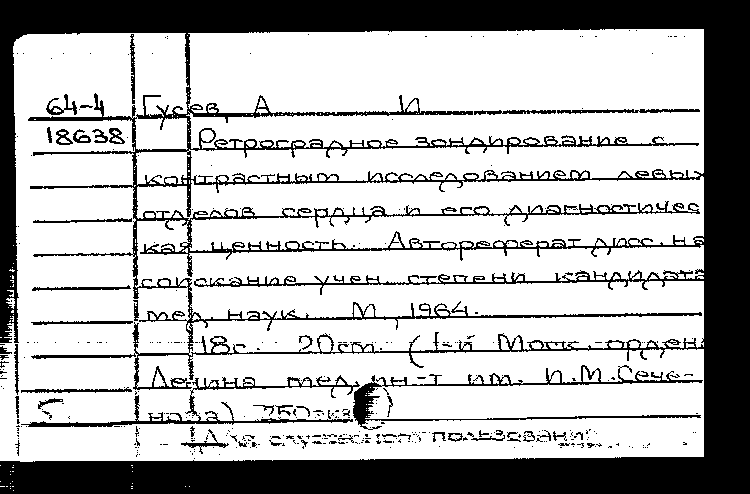 64-4 Гусев, А И
18638 Ретроградное зондирование с
контрастным исследованием левых
отделов сердца и его диагностичес
кая ценность. Автореферат дисс. на
соискание учен. степени кандидата
мед. наук. М, 1964.
18с. 20см. (1-й Моск. ордена
Ленина мед. ин-т им. И.М.Сече-
нова) 250экз
Для служебного пользования